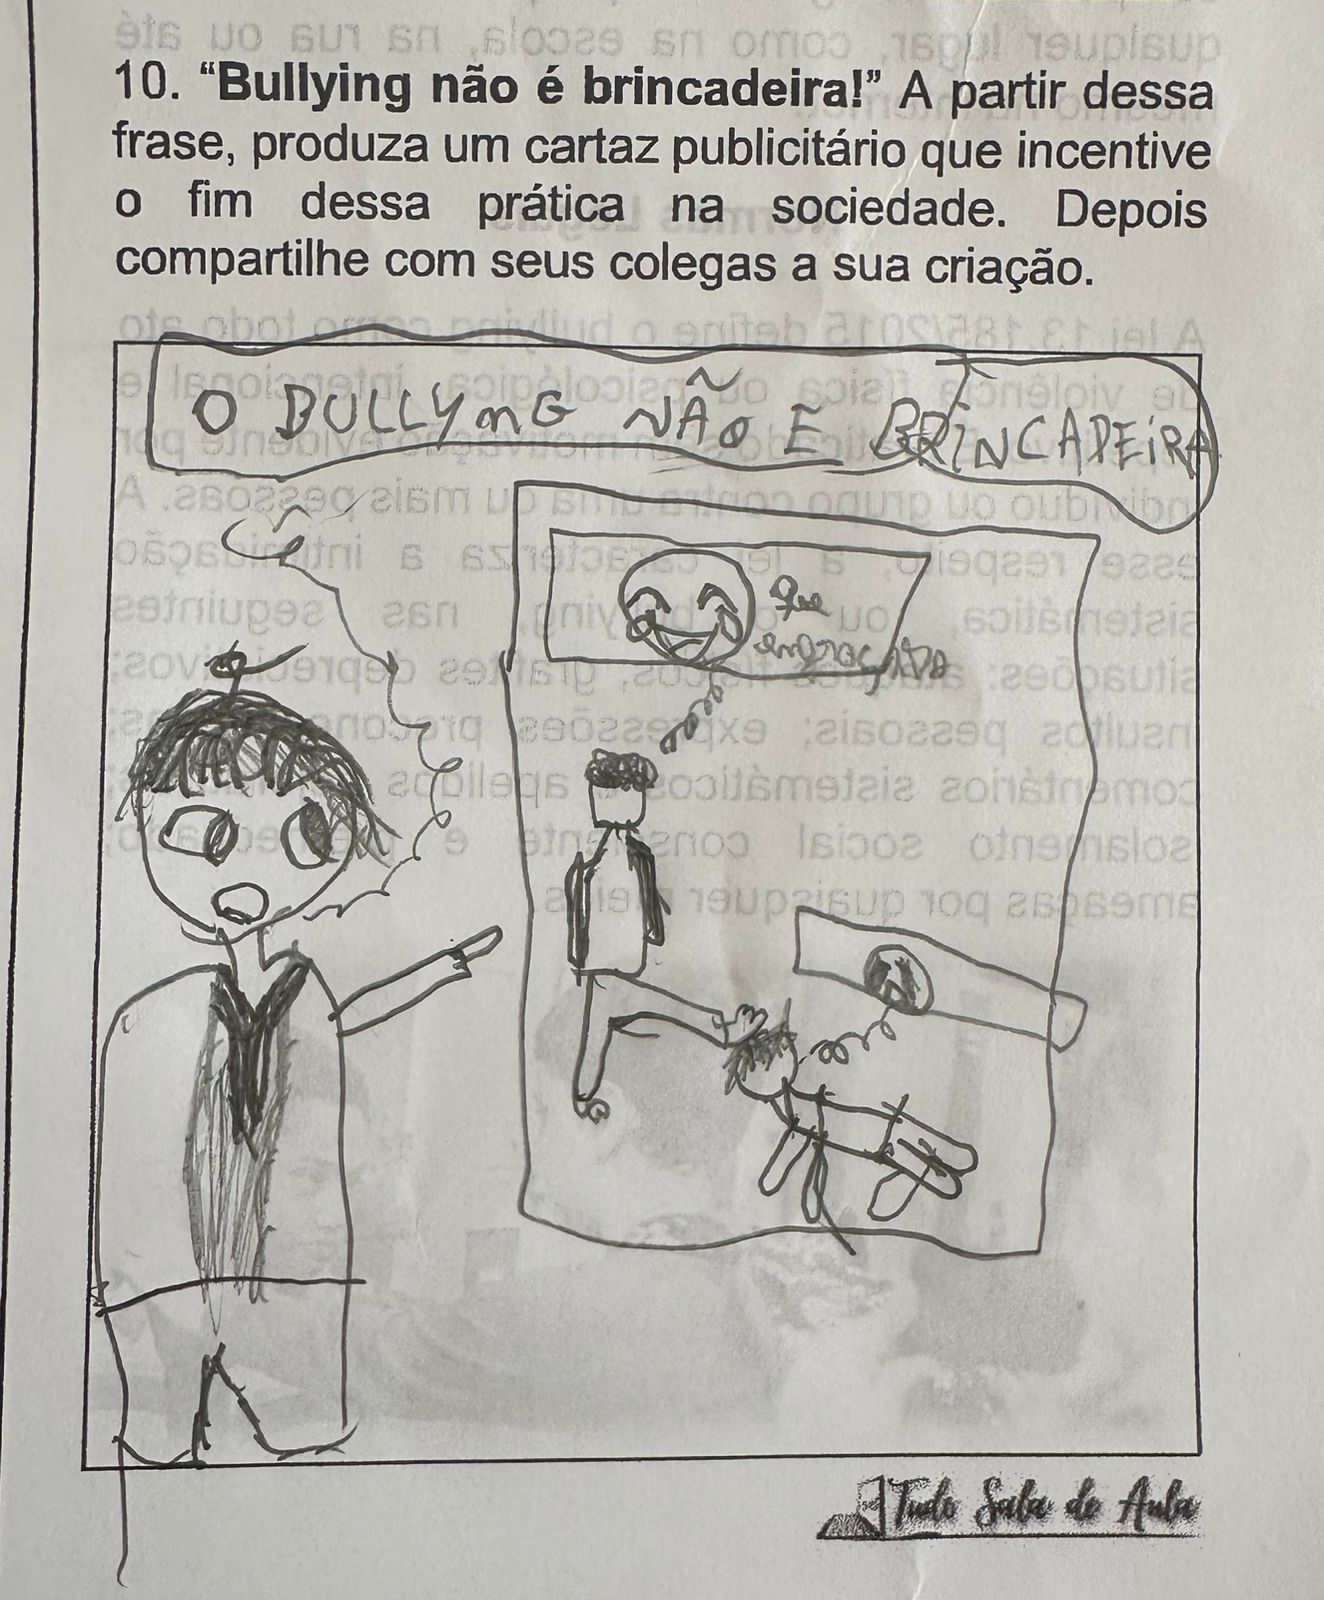 10. “Bullying não é brincadeira!” A partir dessa
frase, produza um cartaz publicitário que incentive
o fim dessa prática na sociedade. Depois
compartilhe com seus colegas a sua criação.
O BULLYmG NÃO E BRINCADEiRA
que
engraçado
Tudo Sala de Aula